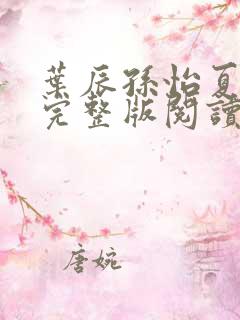 葉辰孫怡夏
完整版閱讀
唐婉